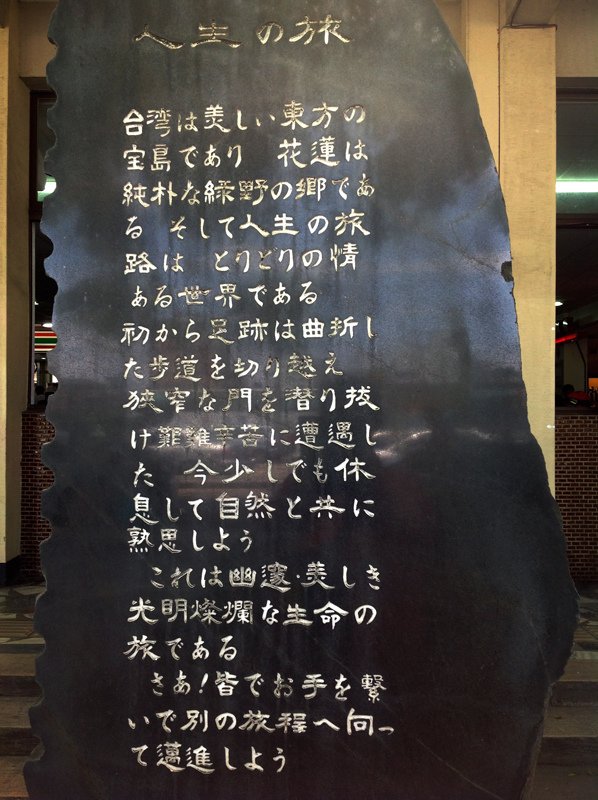 人生の旅
台湾は美しい東方の
宝島であり 花蓮は
純朴な緑野の郷であ
る そして人生の旅
路は とりどりの情
ある世界である
初から足跡は曲折し
た歩道を切り越え
狭窄な門を潜り抜
け艱難辛苦に遭遇し
た 今少しでも休
息して自然と共に
熟思しよう
これは幽邃・美しき
光明燦爛な生命の
旅である
さあ!皆でお手を繋
いで別の旅程へ向っ
て邁進しよう